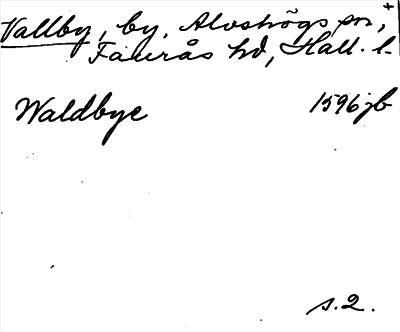 Vallby, by, Alvshögs sn, +
Faurås hd, Hall. l.
Waldbye 1596 jb
s. 2.